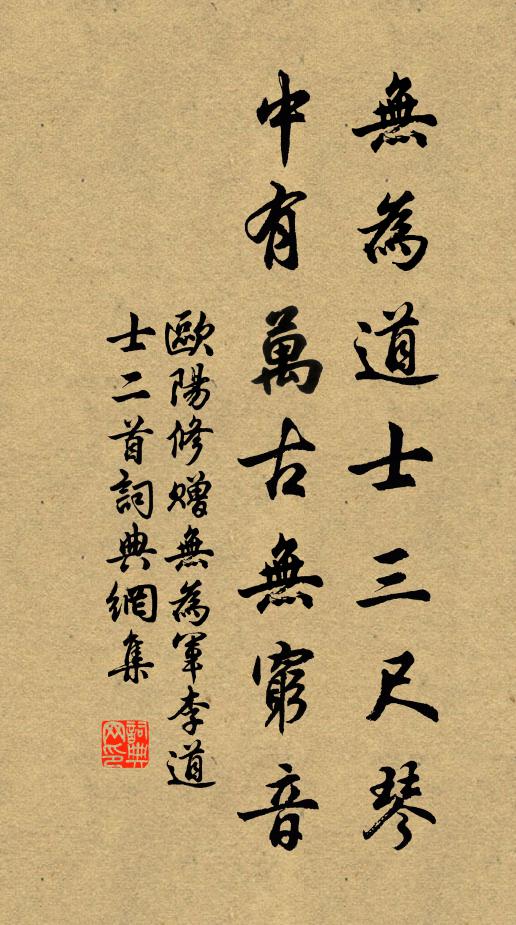 無為道士三尺琴
中有萬古無窮音
歐陽修贈無為軍李道
士二首詞典網集
詞典网印